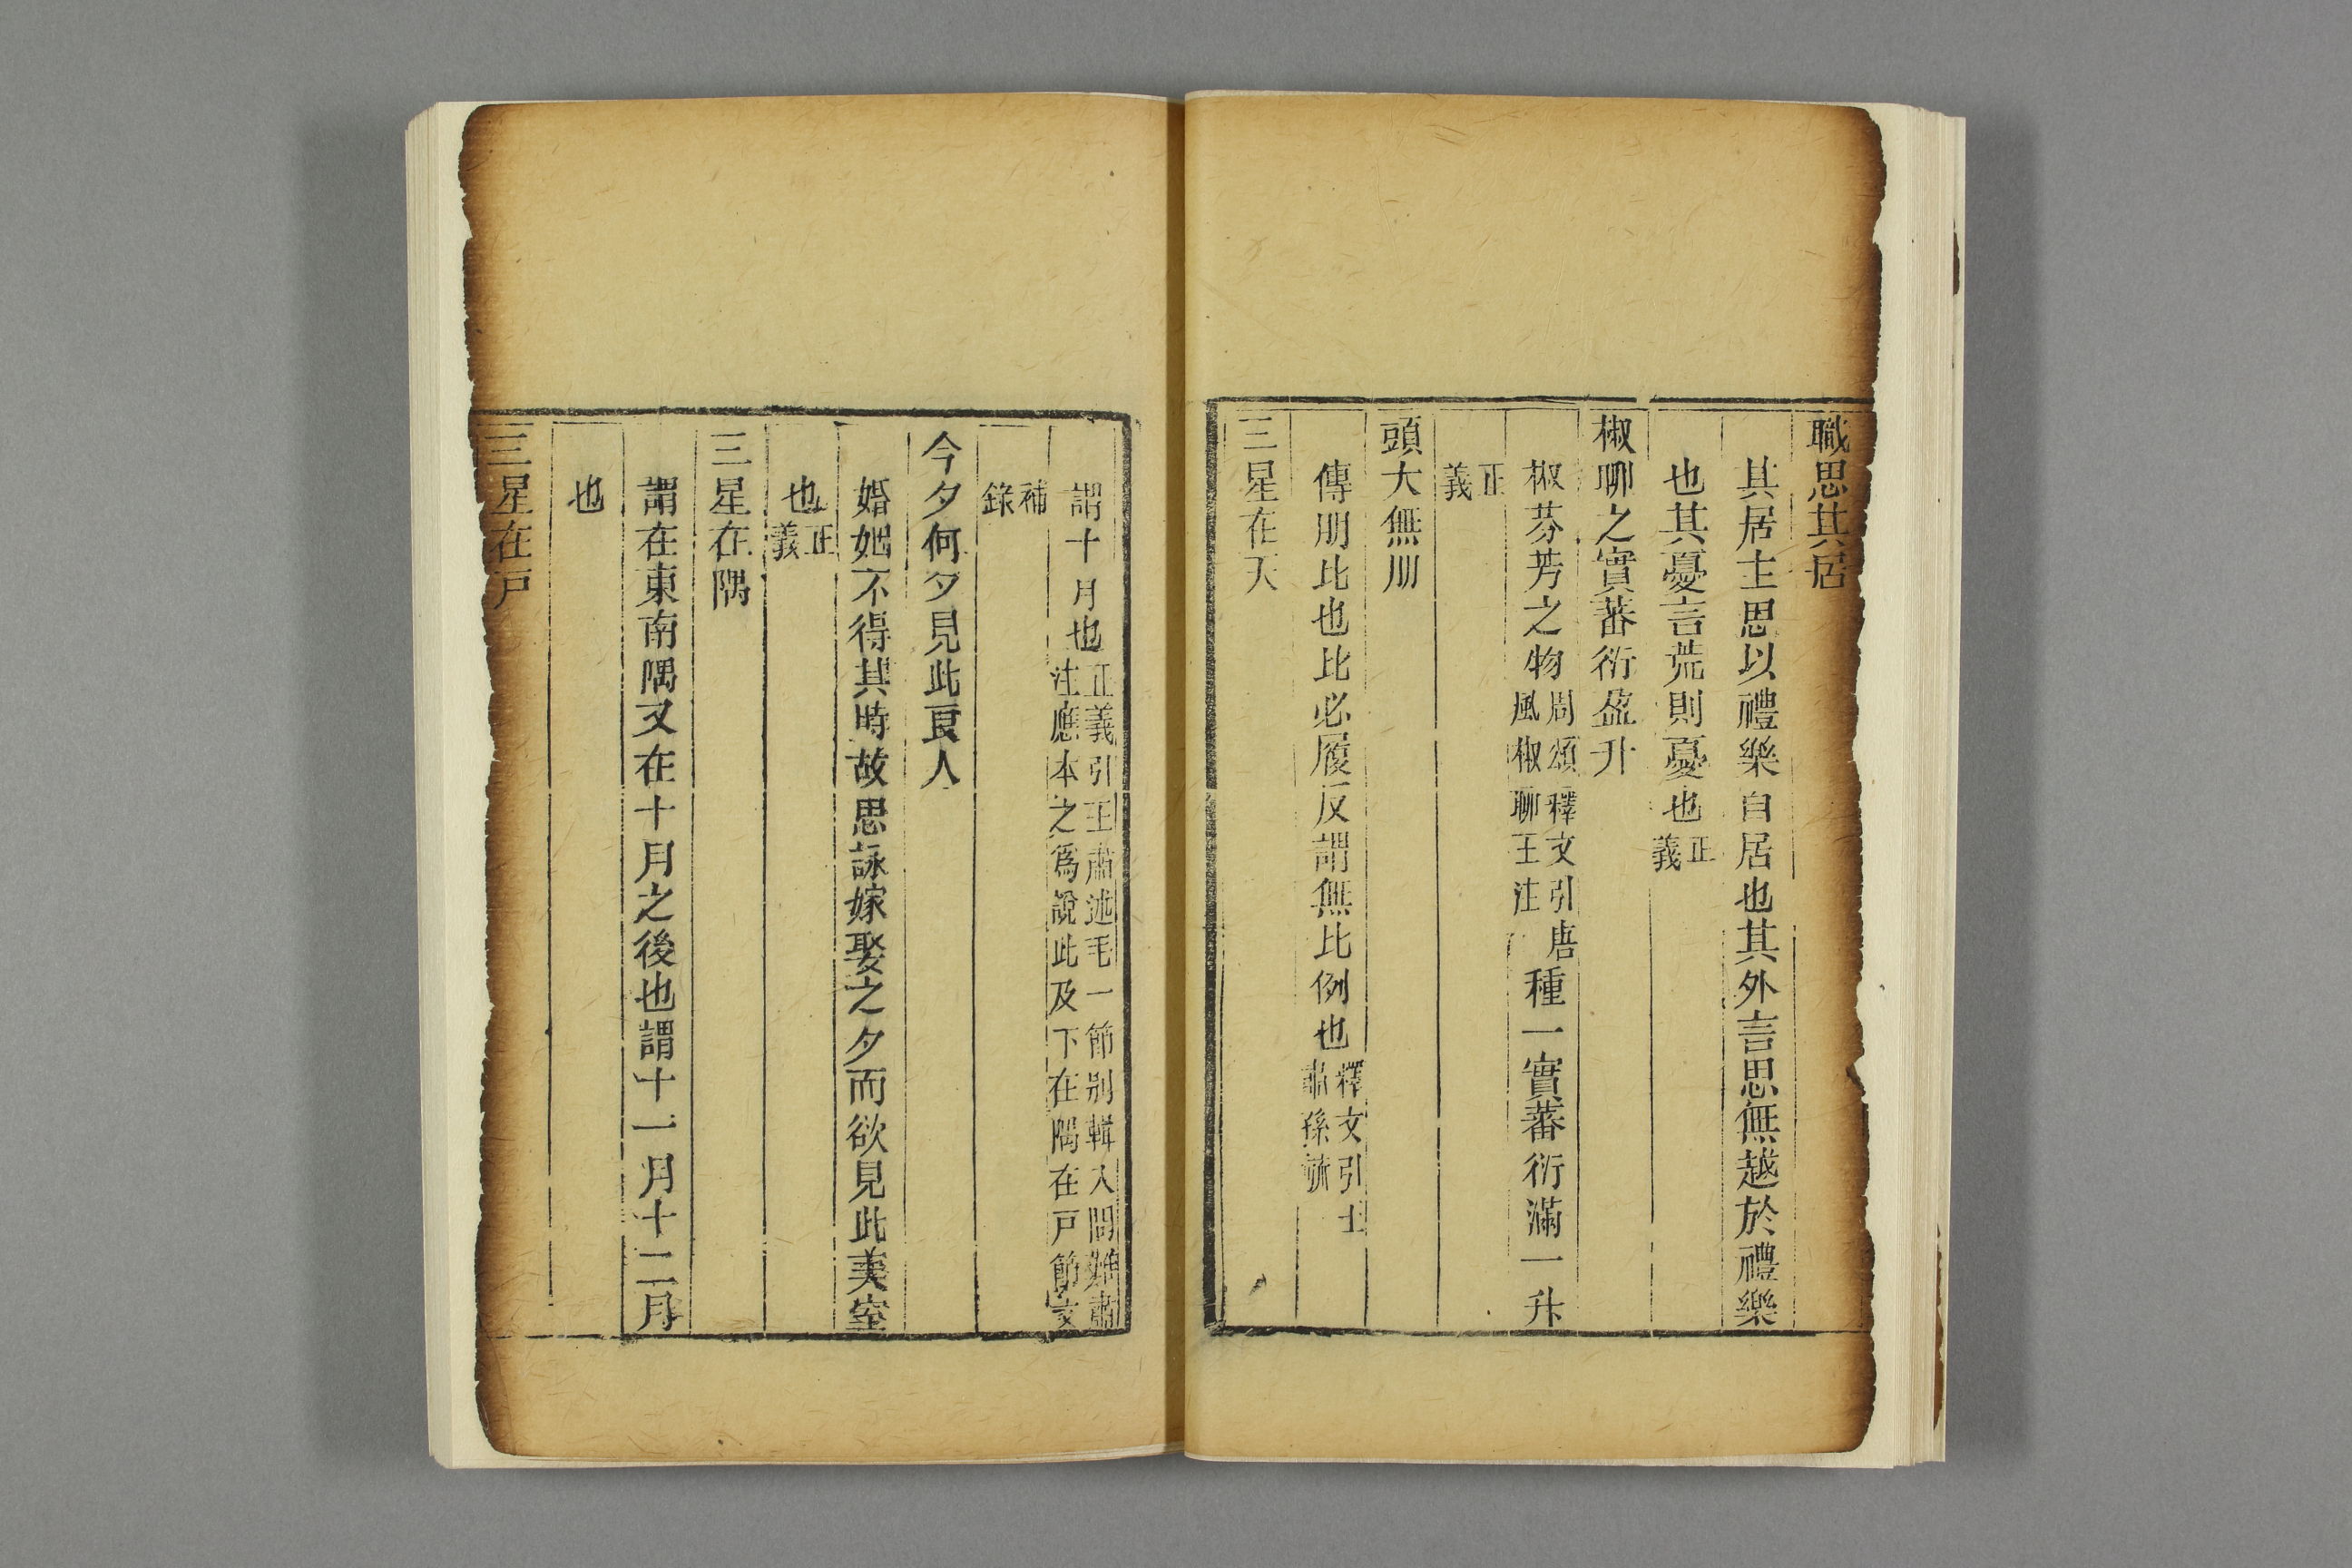 職思其居
其居主思以禮樂自居也其外言思無越於禮樂
也其憂言荒則憂也正義
椒聊之實蕃衍盈升
椒芬芳之物周頌釋文引唐風椒聊王注種一實蕃衍滿一升
正義
頭大無朋
傳朋比也比必履反謂無比例也釋文引王肅孫毓
三星在天
謂十月也正義引王肅述毛一節别輯入問難肅注應本之爲說此及下在隅在戸節文
補錄
今夕何夕見此良人
婚姻不得其時故思詠嫁娶之夕而欲見此美室
也正義
三星在隅
謂在東南隅又在十月之後也謂十一月十二月
也
三星在戸